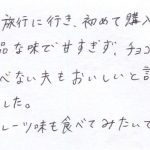 旅行に行き、初めて購入
品な味で甘すぎず、チョコ
べない夫もおいしいと言
した。
レーツ味も食べてみたいで